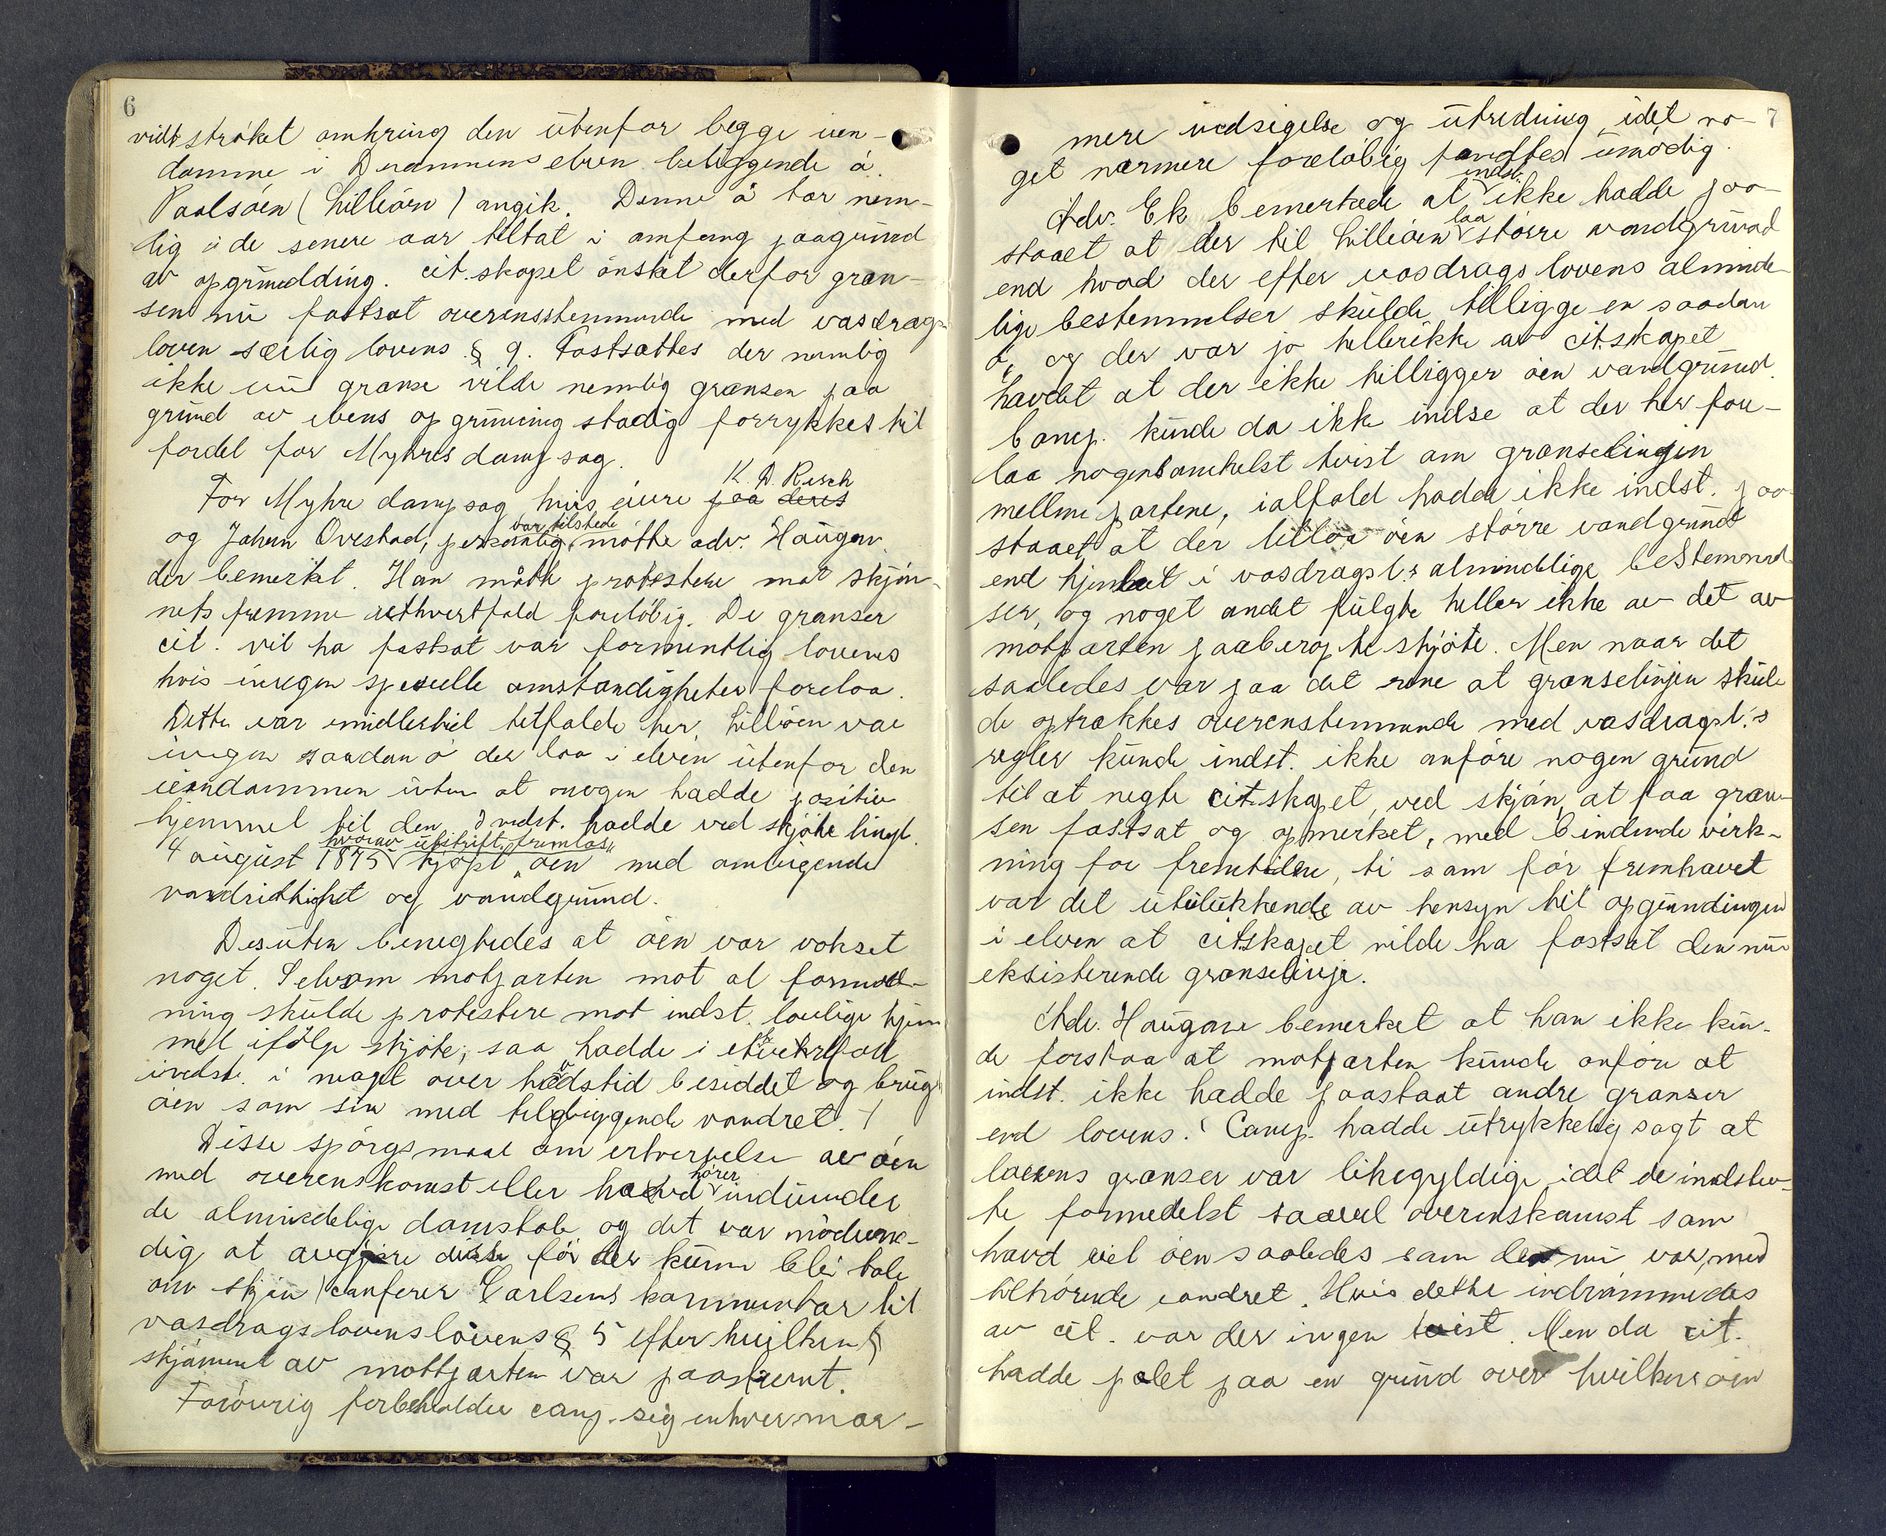 6
vidt strøket omkring den utenfor begge ien-
domme i Drammenselven beliggende ø
Paalsøen (Lilleøen) angik. Denne ø tar nem-
lig i de senere aar tiltat i omfang paagrund
av opgrunding. Citskapet ønsket derfor græn-
sen nu fastsat overensstemmende med vasdrags
loven særlig lovens § 9. Fastsattes der nemlig
ikke nu grænse vilde nemlig grænsen paa
grund av elvens opgrunning stadig forrykkes til
fordel for Myhres dampsag.
K. D. Risch
For Myhre dampsag hvis eiere paa deres
var tilstede
og Johan Ovestad, personlig møtte adv. Haugan.
der bemerket. Han maatte protestere mot skjøn-
nets fremme ethvertfald foreløbig. De grænser
cit. vil ha fastsat var formentlig lovens
hvis ingen specielle omstændigheter forelaa.
Dette var imidlertid tilfælde her, Lilleøen var
ingen saadan ø der laa i elven utenfor den
eiendommen uten at nogen hadde positiv
hjemmel til den. Indst. hadde ved skjøte tingl.
hvorav utskrift fremlaes
4 august 1875 kjøpt øen med omliggende
vandrettighet og vandgrund.
Desuten benegtedes at øen var vokset
noget. Selvom motparten mot al formod-
ning skulde protestere mot indst. lovlige hjem
mel ifølge skjøte, saa hadde i ethvertfald
indst. i meget over hævdstid besiddet og brugt
øen som sin med tilliggende vandret.
Disse spørgsmaal om erhvervelse av øen
hører
med overenskomst eller hævd ind under
de almindelige domstole og det var nødven-
dig at avgjøre disse før der kunne bli tale
om skjøn (conferer Carlsens kommentar til
vasdragslovens lovens § 5 efter hvilken §
skjønnet av motparten var paastevnt.
Forøvrig forbeholder comp. sig enhver nær-
7
mere indsigelse og utredning, idet no-
get nærmere foreløbig fandtes unødig.
indst.
Adv. Ek bemerkede at ikke hadde paa-
laa
staaet at der til Lilleøen større vandgrund
end hvad der efter vasdragslovens alminde-
lige bestemmelser skulde tilligge en saadan
ø, og der var jo hellerikke av citskapet
hævdet at der ikke tilligger øen vandgrund.
Comp. kunde da ikke indse at der her fore-
laa nogensomhelst tvist om grænselinjen
mellem partene, ialfald hadde ikke indst. paa-
staaet at der tillaa øen større vandgrund
end hjemlet i vasdragsl.s almindelige bestemmel
ser, og noget andet fulgte heller ikke av det av
motparten paaberopte skjøte. Men naar det
saaledes var paa det rene at grænselinjen skul
de optrækkes overenstemmende med vasdragsl.'s
regler kunde indst. ikke anføre nogen grund
til at negte citskapet, ved skjøn, at faa græn-
sen fastsat og opmerket, med bindende virk-
ning for fremtiden, ti som før fremhævet
var det utelukkende av hensyn til opgrundingen
i elven at citskapet vilde ha fastsat den nu
eksisterende grænselinje.
Adv. Haugan bemerket at han ikke kun-
de forstaa at motparten kunde anføre at
indst. ikke hadde paastaat andre grænser
end lovens. Comp. hadde utrykkelig sagt at
lovens grænser var likegyldige idet de indstev-
te formedelst saavel overenskomst som
hævd eiet øen saaledes som den nu var, med
tilhørende vandret. Hvis dette indrømmedes
av cit. var der ingen tvist. Men da cit.
hadde pælet paa en grund over hvilken øen